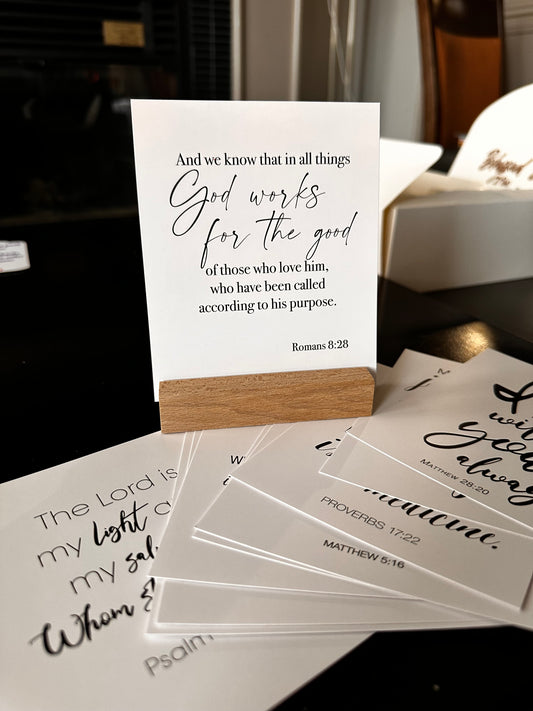 And we know that in all things
God works
for the good
of those who love him,
who have been called
according to his purpose.
Romans 8:28
Blessed
I
will
you
always
MATTHEW 28:20
medicine.
PROVERBS 17:22
MATTHEW 5:16
The Lord is
my light
my
Whom
Psalm